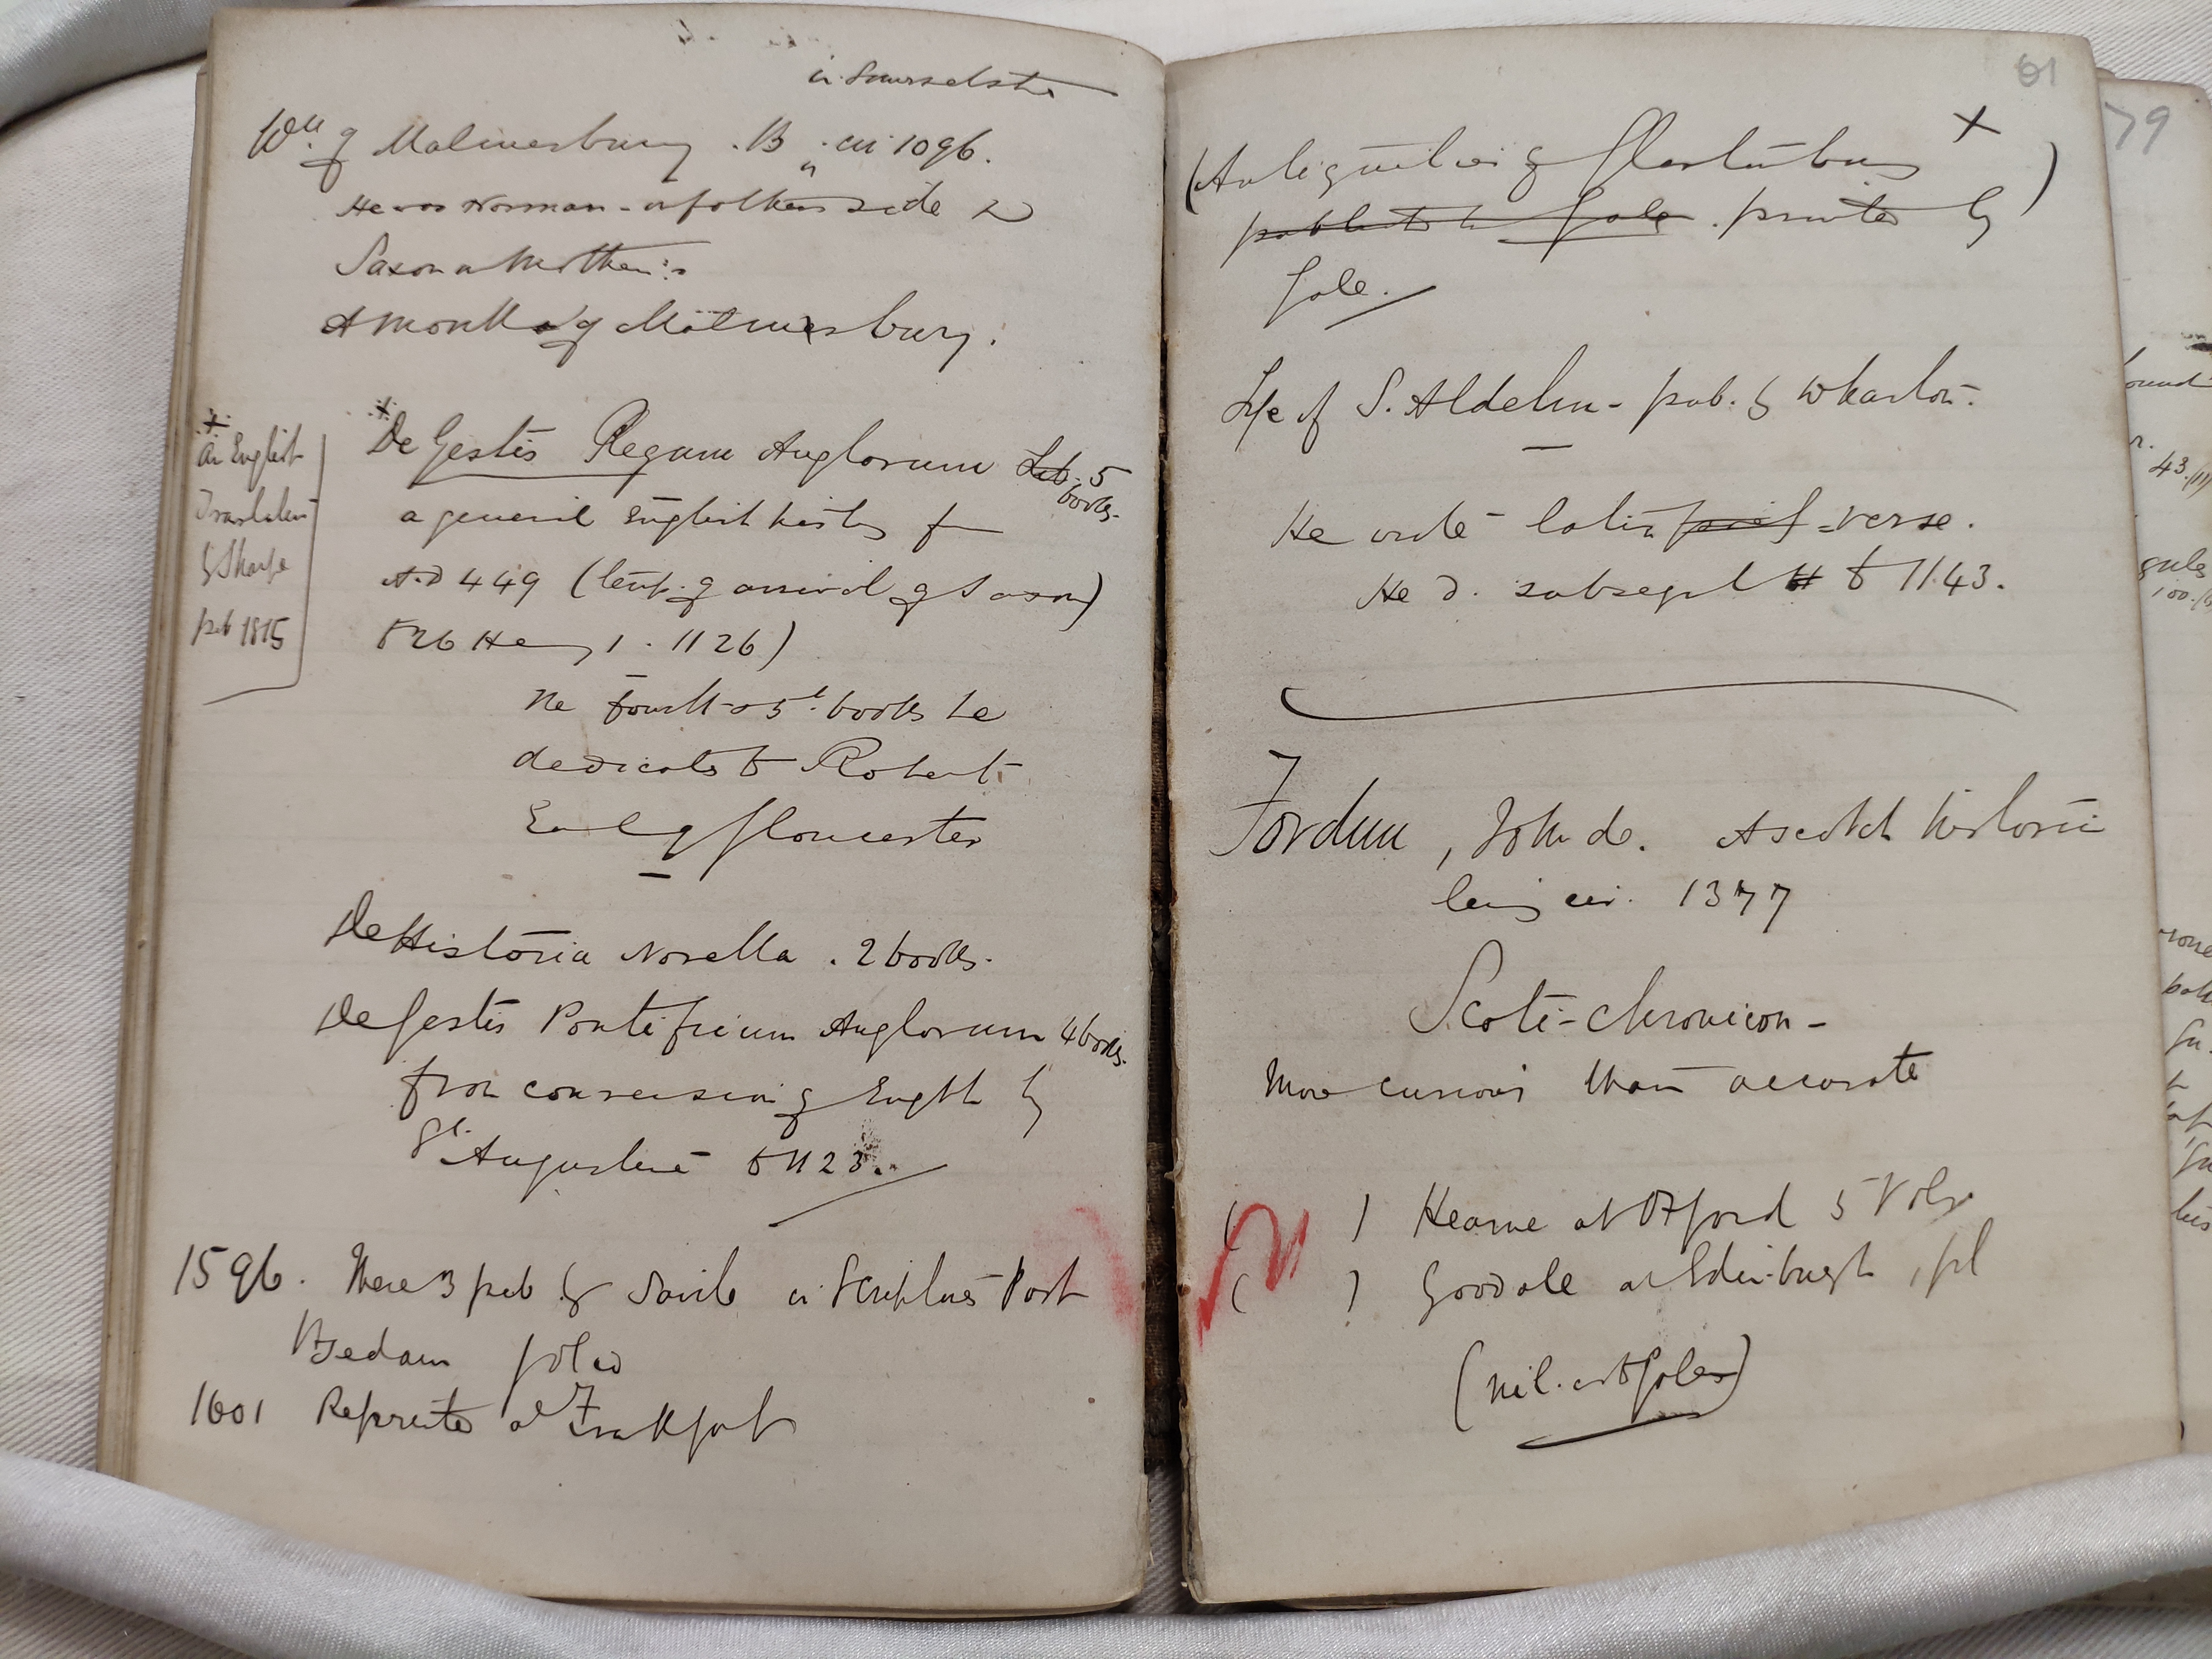 in Somersetshire
Wm of Malmesbury . B. cir 1096.
He was Norman on fathers side &
Saxon on Mother's
A monk of Malmesbury.
De Gestis Regum Anglorum Lib. 5
books.
a general English history from
A.D 449 (temp. of arrival of Saxons)
to 26 Henry 1 . 1126)
An English
Translation
by Sharpe
pub 1815
The fourth & 5th books he
dedicates to Robert
Earl of Gloucester
De Historia Novella . 2 books.
De Gestis Pontificum Anglorum 4 books.
from conversion of English by
St Augustine to 1123.
1596. These 3 pub by Savile in Scriptores Post
Bedam folio
1601 Reprinted at Frankfort
61
(Antiquities of Glastonbury X
published by Gale . printed by )
Gale.
Life of S. Aldelm - pub. by Wharton.
He wrote latin verse.
He d. subseqt to 1143.
Fordun, John de. A scotch historian
living cir. 1377
Scoti-chronicon -
More curious than accurate
( ) Hearne at Oxford 5 Vols
( ) Goodale at Edinburgh , fol
79